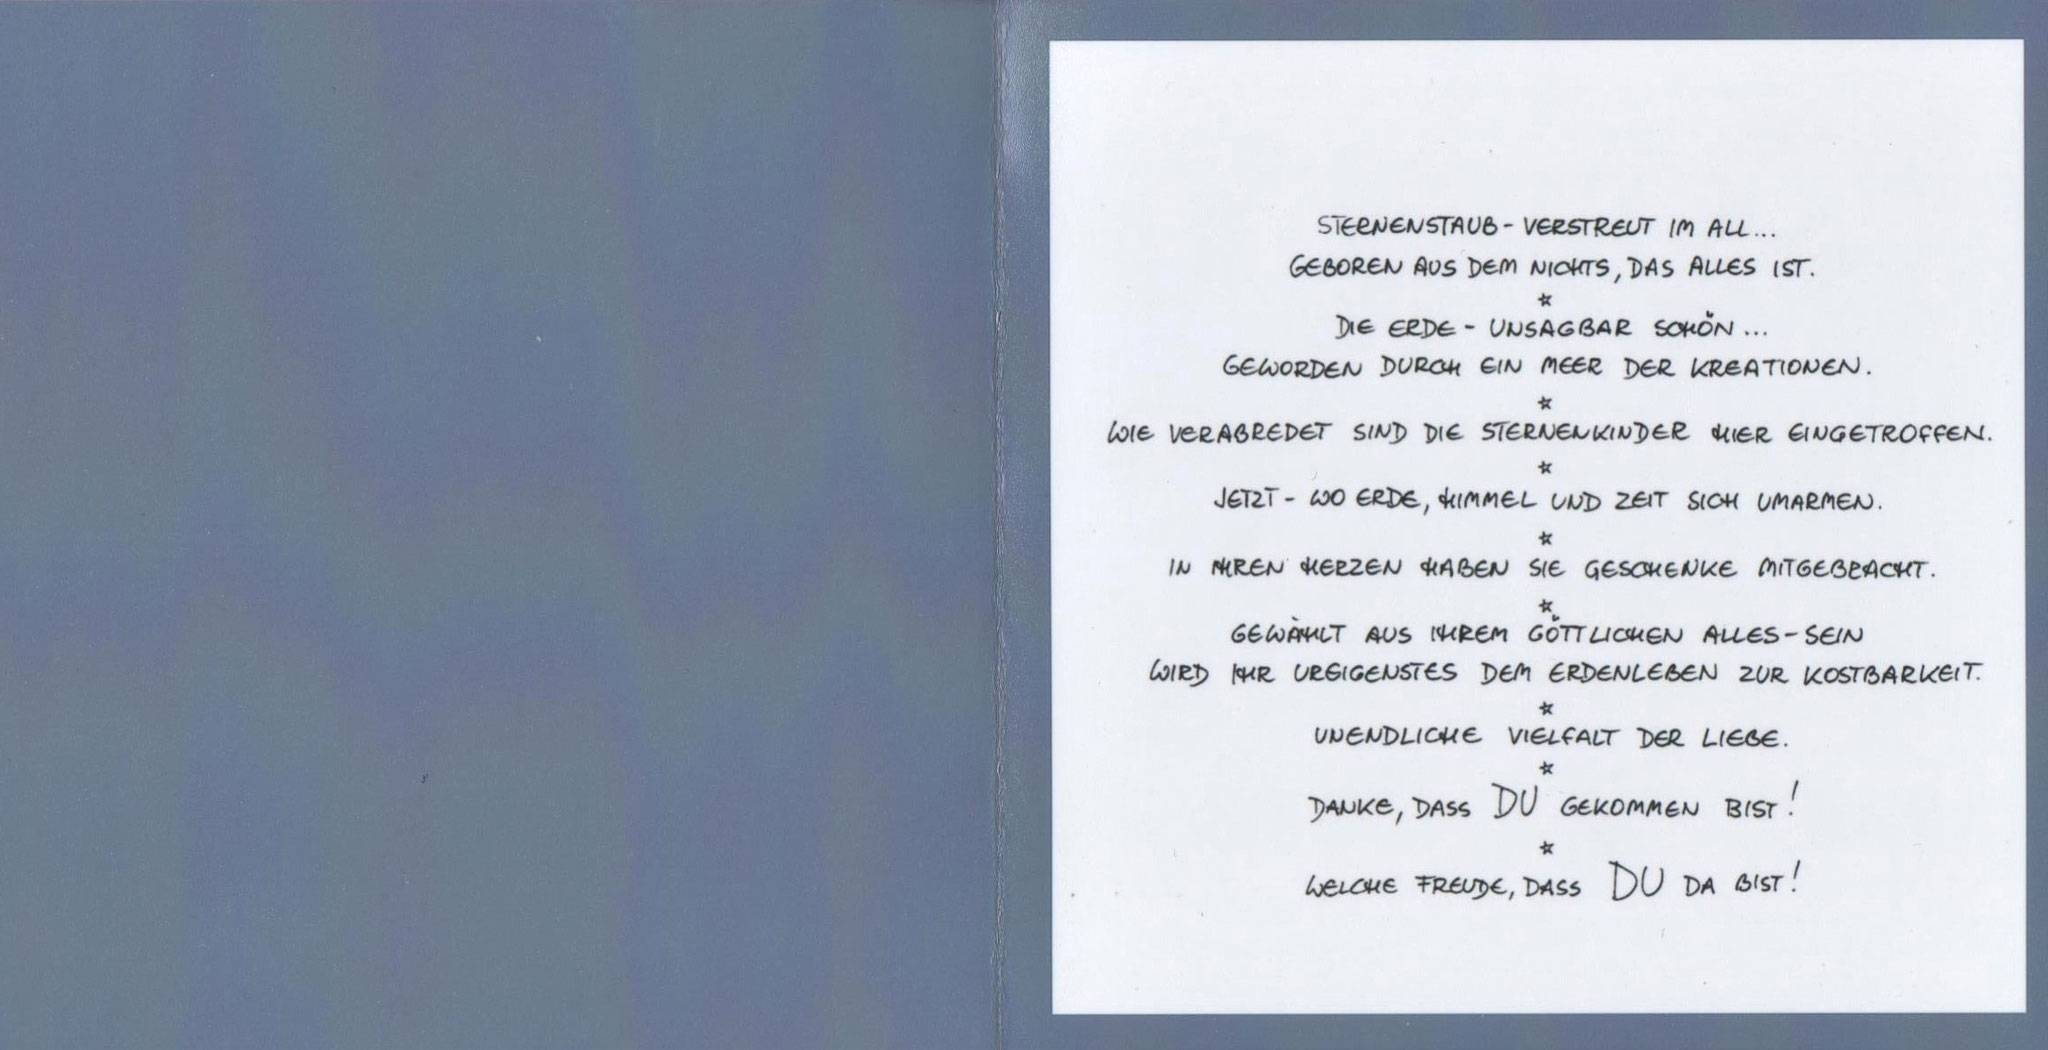 STERNENSTAUB - VERSTREUT IM ALL...
GEBOREN AUS DEM NICHTS, DAS ALLES IST.
*
DIE ERDE - UNSAGBAR SCHÖN...
GEWORDEN DURCH EIN MEER DER KREATIONEN.
*
WIE VERABREDET SIND DIE STERNENKINDER HIER EINGETROFFEN.
*
JETZT - WO ERDE, HIMMEL UND ZEIT SICH UMARMEN.
*
IN IHREN HERZEN HABEN SIE GESCHENKE MITGEBRACHT.
*
GEWÄHLT AUS IHREM GÖTTLICHEN ALLES-SEIN
WIRD IHR UREIGENSTES DEM ERDENLEBEN ZUR KOSTBARKEIT.
*
UNENDLICHE VIELFALT DER LIEBE.
*
DANKE, DASS DU GEKOMMEN BIST!
*
WELCHE FREUDE, DASS DU DA BIST!